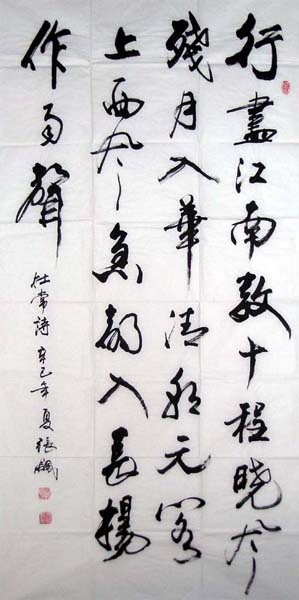 行盡江南数十程晓风
殘月入華清朝元阁
上西风急都入長楊
作雨聲
杜常詩 辛巳年夏 張